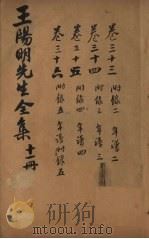 卷三十三 附錄二 年譜二
卷三十四 附錄三 年譜三
卷三十五 附錄四 年譜四
卷三十六 附錄五 年譜附錄五
王陽明先生全集 十一冊